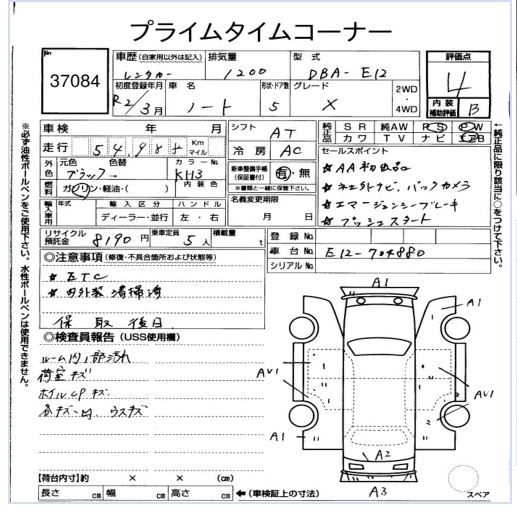 プライムタイムコーナー
No
37084
車歴(自家用以外は記入)
レンタカー
排気量
1200
型式
DBA-E12
評価点
4
内装
補助評価
B
初度登録年月
R2/3月
車名
ノート
形状・ドア数
5
グレード
X
2WD
4WD
車検 年 月
走行 54,984 Km マイル
シフト AT
冷房 AC
純正品 SR 純AW PS PW
革 カワ TV ナビ エアB
セールスポイント
★AA初出品
★社外ナビ、バックカメラ
★エマージェンシーブレーキ
★プッシュスタート
外色 元色 色替 カラーNo
ブラック→ KH3
燃料 ガソリン・軽油・( ) 内装色
新車整備手帳(保証書付) 有・無
※書類と一緒に保管下さい。
名義変更期限
月 日
輸入車用 年式 輸入区分 ハンドル
ディーラー・並行 左・右
リサイクル預託金 8190円
乗車定員 5人
積載量 t
登録No.
車台No. E12-704880
シリアルNo.
◎注意事項(修復・不具合箇所および状態等)
★ETC
★内外装清掃済
保 取 後日
◎検査員報告(USS使用欄)
ルーム内1部汚れ
荷室キズ
ホイルCPキズ
各キズ・凹 ウスキズ
【荷台内寸】約 × × (cm)
長さ cm 幅 cm 高さ cm ←(車検証上の寸法)
A1
A1
AV1
AV1
A1
A2
A3
スペア
※必ず油性ボールペンをご使用下さい。水性ボールペンは使用できません。
←純正品に限り該当に○をつけて下さい。